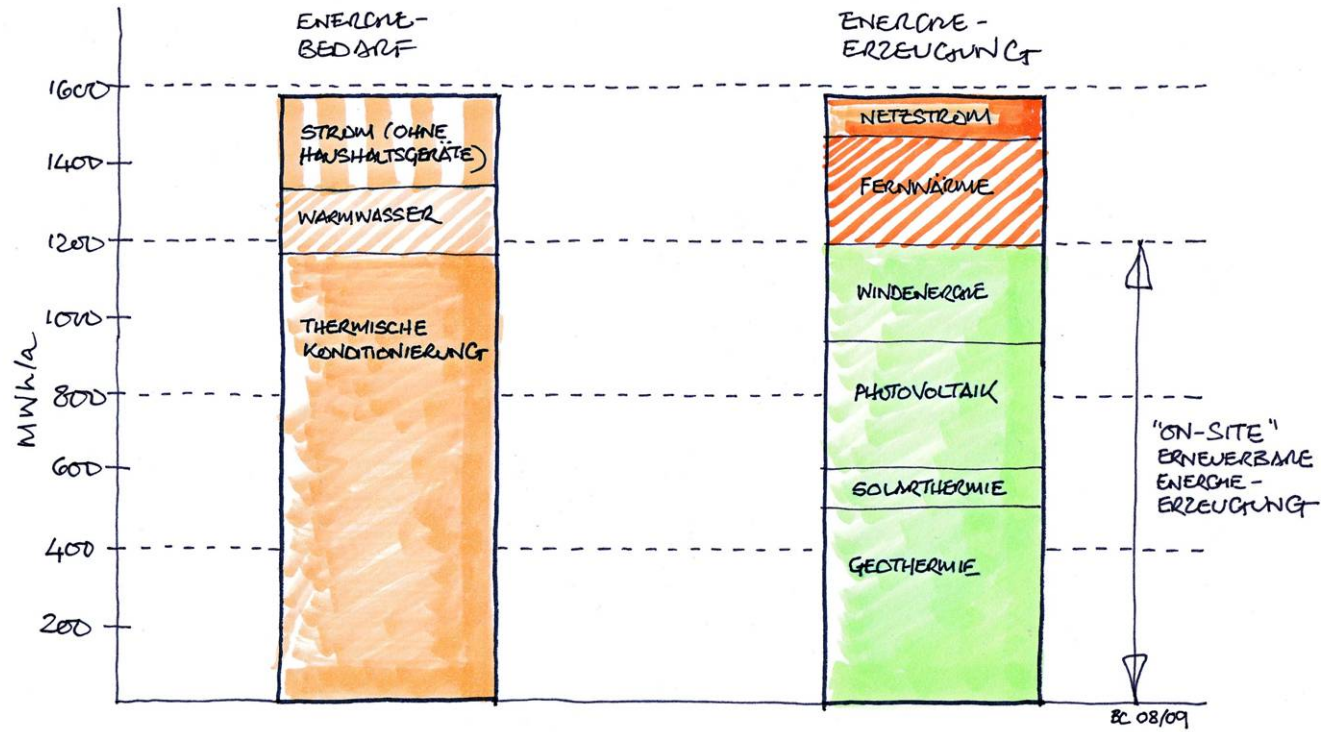 ENERGIE-
BEDARF
ENERGIE-
ERZEUGUNG
MWh/a
1600
1400
1200
1000
800
600
400
200
STROM (OHNE
HAUSHALTSGERÄTE)
WARMWASSER
THERMISCHE
KONDITIONIERUNG
NETZSTROM
FERNWÄRME
WINDENERGIE
PHOTOVOLTAIK
SOLARTHERMIE
GEOTHERMIE
"ON-SITE"
ERNEUERBARE
ENERGIE-
ERZEUGUNG
BC 08/09